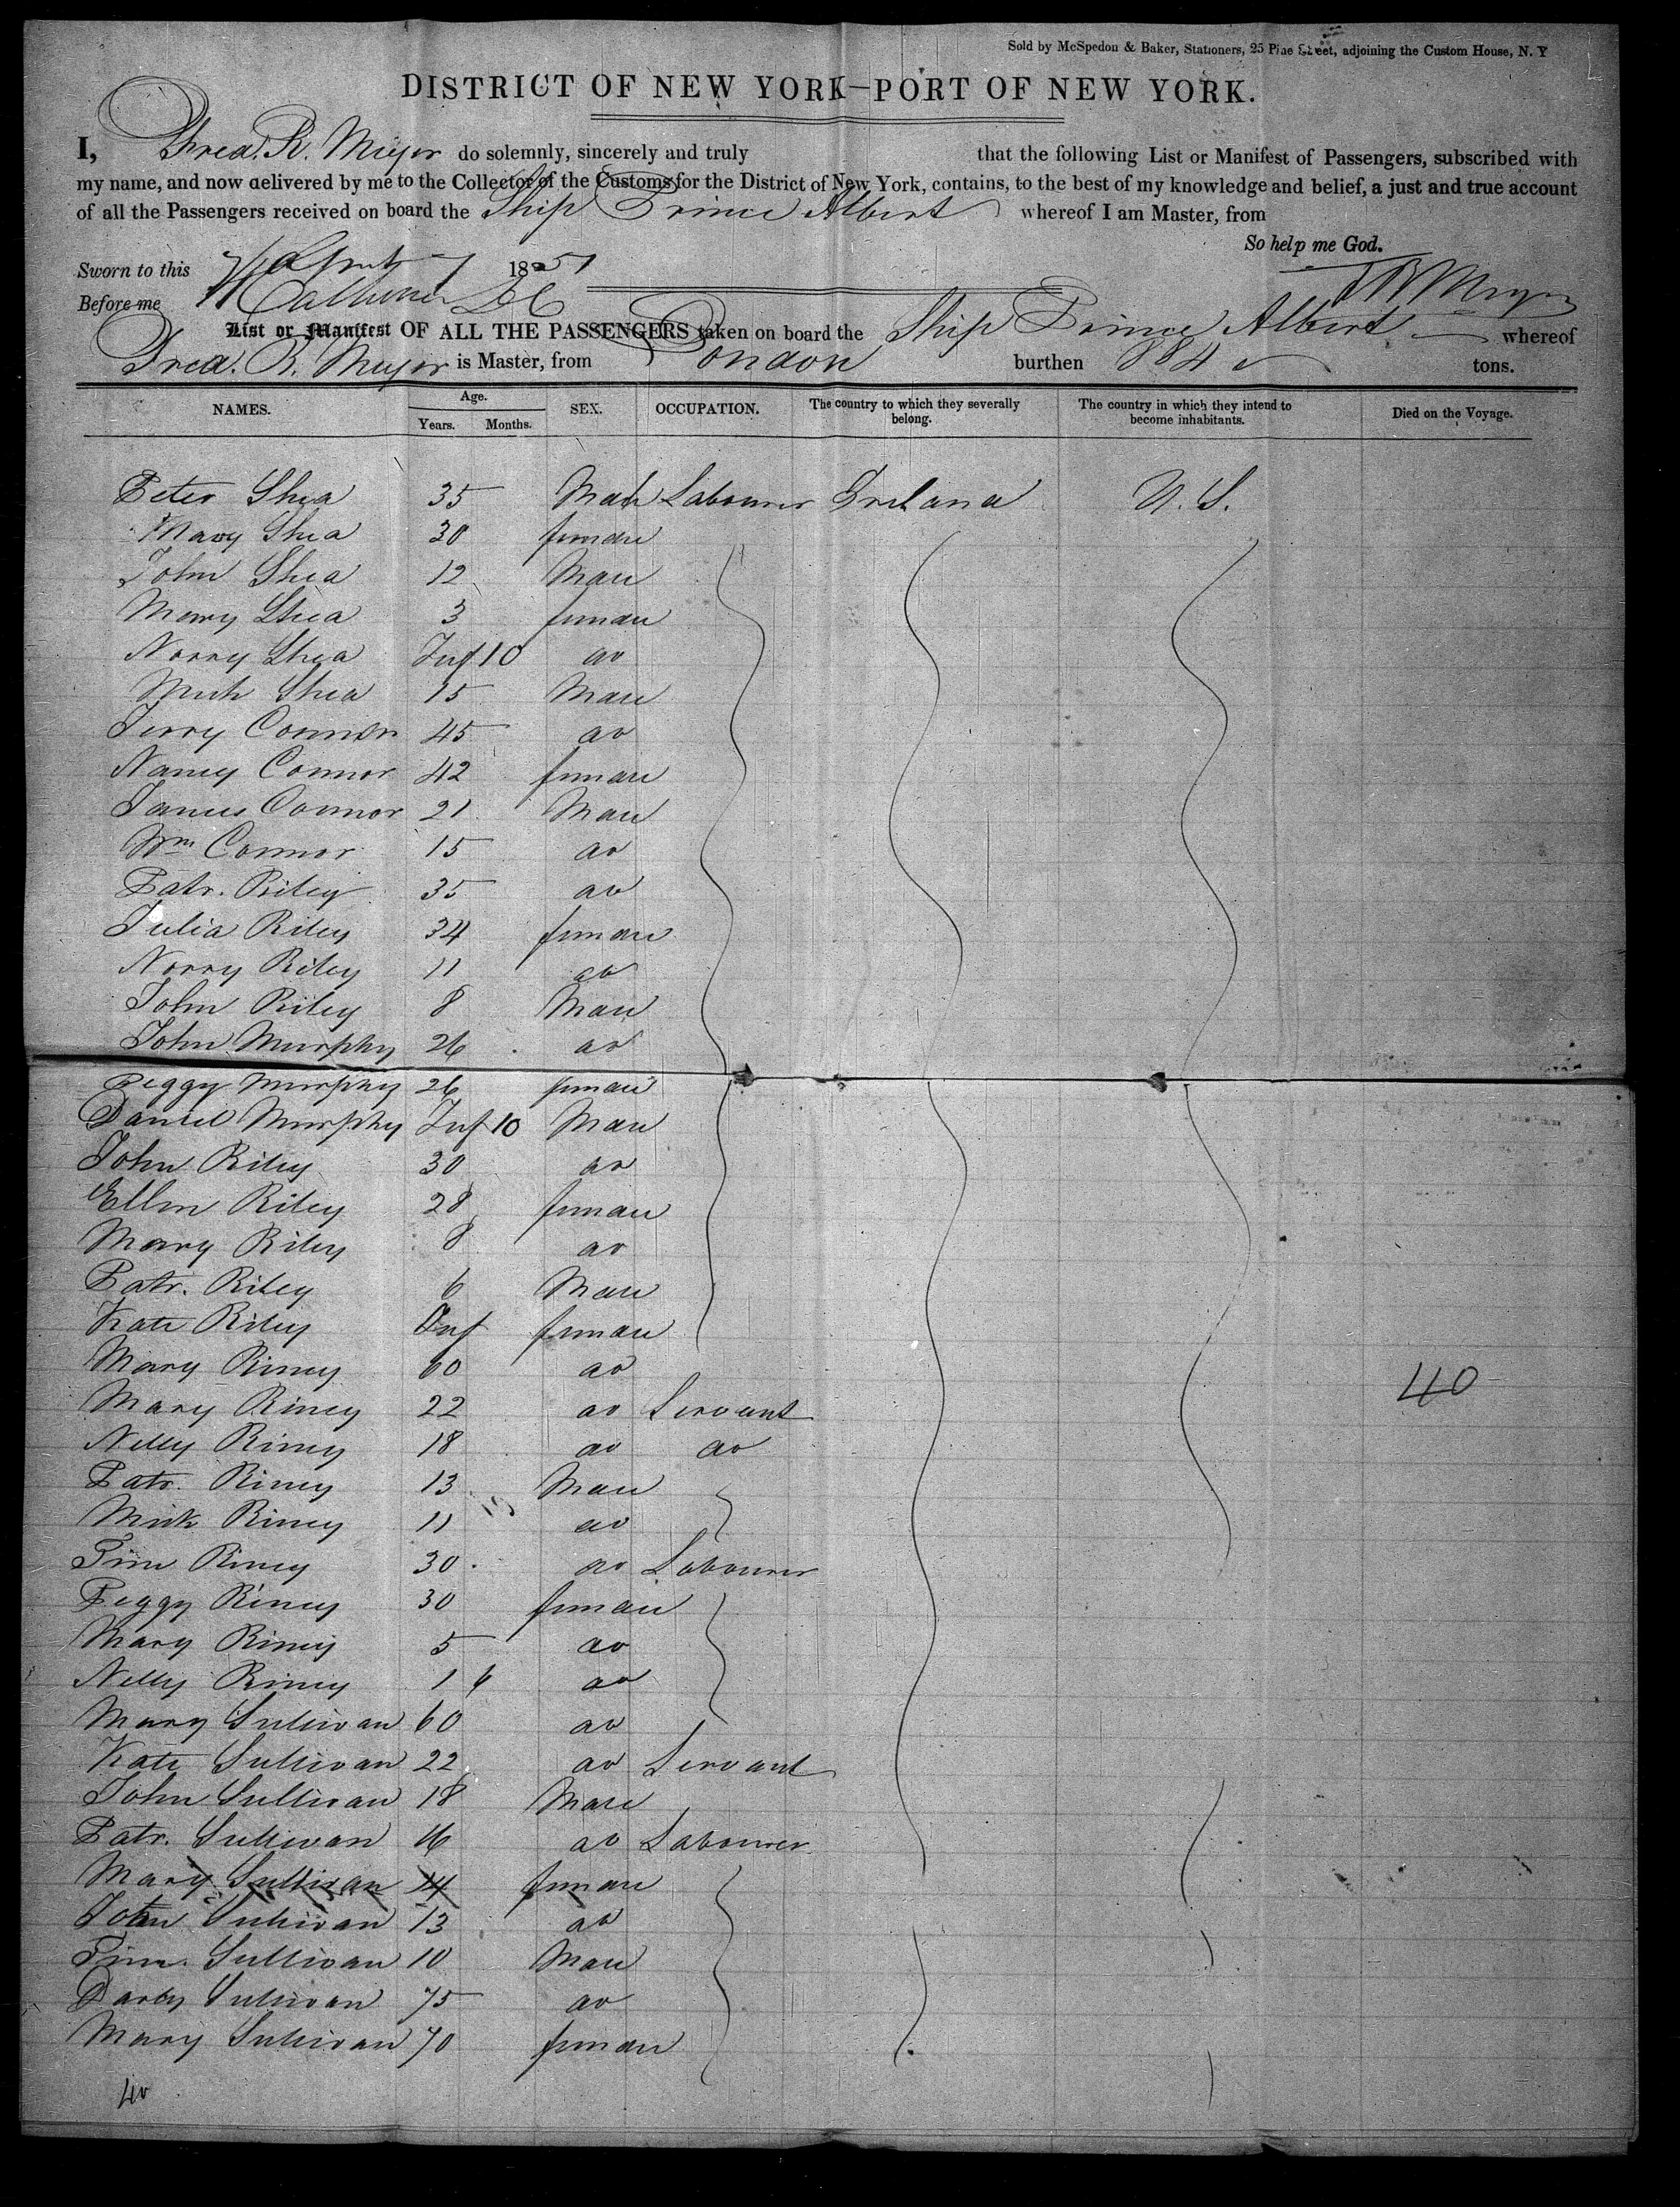 Sold by McSpedon & Baker, Stationers, 25 Pine Street, adjoining the Custom House, N. Y
DISTRICT OF NEW YORK—PORT OF NEW YORK.
I, Fred. R. Meyer do solemnly, sincerely and truly that the following List or Manifest of Passengers, subscribed with
my name, and now delivered by me to the Collector of the Customs for the District of New York, contains, to the best of my knowledge and belief, a just and true account
of all the Passengers received on board the Ship Prince Albert whereof I am Master, from
So help me God.
Sworn to this April 7 1851
Before me
List or Manifest OF ALL THE PASSENGERS taken on board the Ship Prince Albert whereof
Fred. R. Meyer is Master, from London burthen 884 tons.
NAMES. Age. Years. Months. SEX. OCCUPATION. The country to which they severally belong. The country in which they intend to become inhabitants. Died on the Voyage.
Peter Shea 35 Male Labourer Ireland U. S.
Mary Shea 30 female
John Shea 12 Male
Mary Shea 3 female
Norry Shea Inf 10 do
Mich Shea 15 Male
Jerry Connor 45 do
Nancy Connor 42 female
James Connor 21 Male
Wm Connor 15 do
Patr. Riley 35 do
Julia Riley 34 female
Norry Riley 11 do
John Riley 8 Male
John Murphy 26 do
Peggy Murphy 26 female
Daniel Murphy Inf 10 Male
John Riley 30 do
Ellen Riley 28 female
Mary Riley 8 do
Patr. Riley 6 Male
Kate Riley Inf female
Mary Riney 60 do
40
Mary Riney 22 do Servant
Nelly Riney 18 do do
Patr. Riney 13 Male
Mick Riney 11 do
Tim Riney 30 do Labourer
Peggy Riney 30 female
Mary Riney 5 do
Nelly Riney 1 6 do
Mary Sullivan 60 do
Kate Sullivan 22 do Servant
John Sullivan 18 Male
Patr. Sullivan 16 do Labourer
Mary Sullivan 14 female
John Sullivan 13 do
Tim. Sullivan 10 Male
Darby Sullivan 75 do
Mary Sullivan 70 female
40